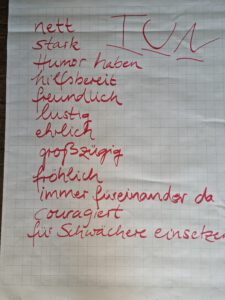 TUN
nett
stark
Humor haben
hilfsbereit
freundlich
lustig
ehrlich
großzügig
fröhlich
immer füreinander da
couragiert
für Schwächere einsetzen